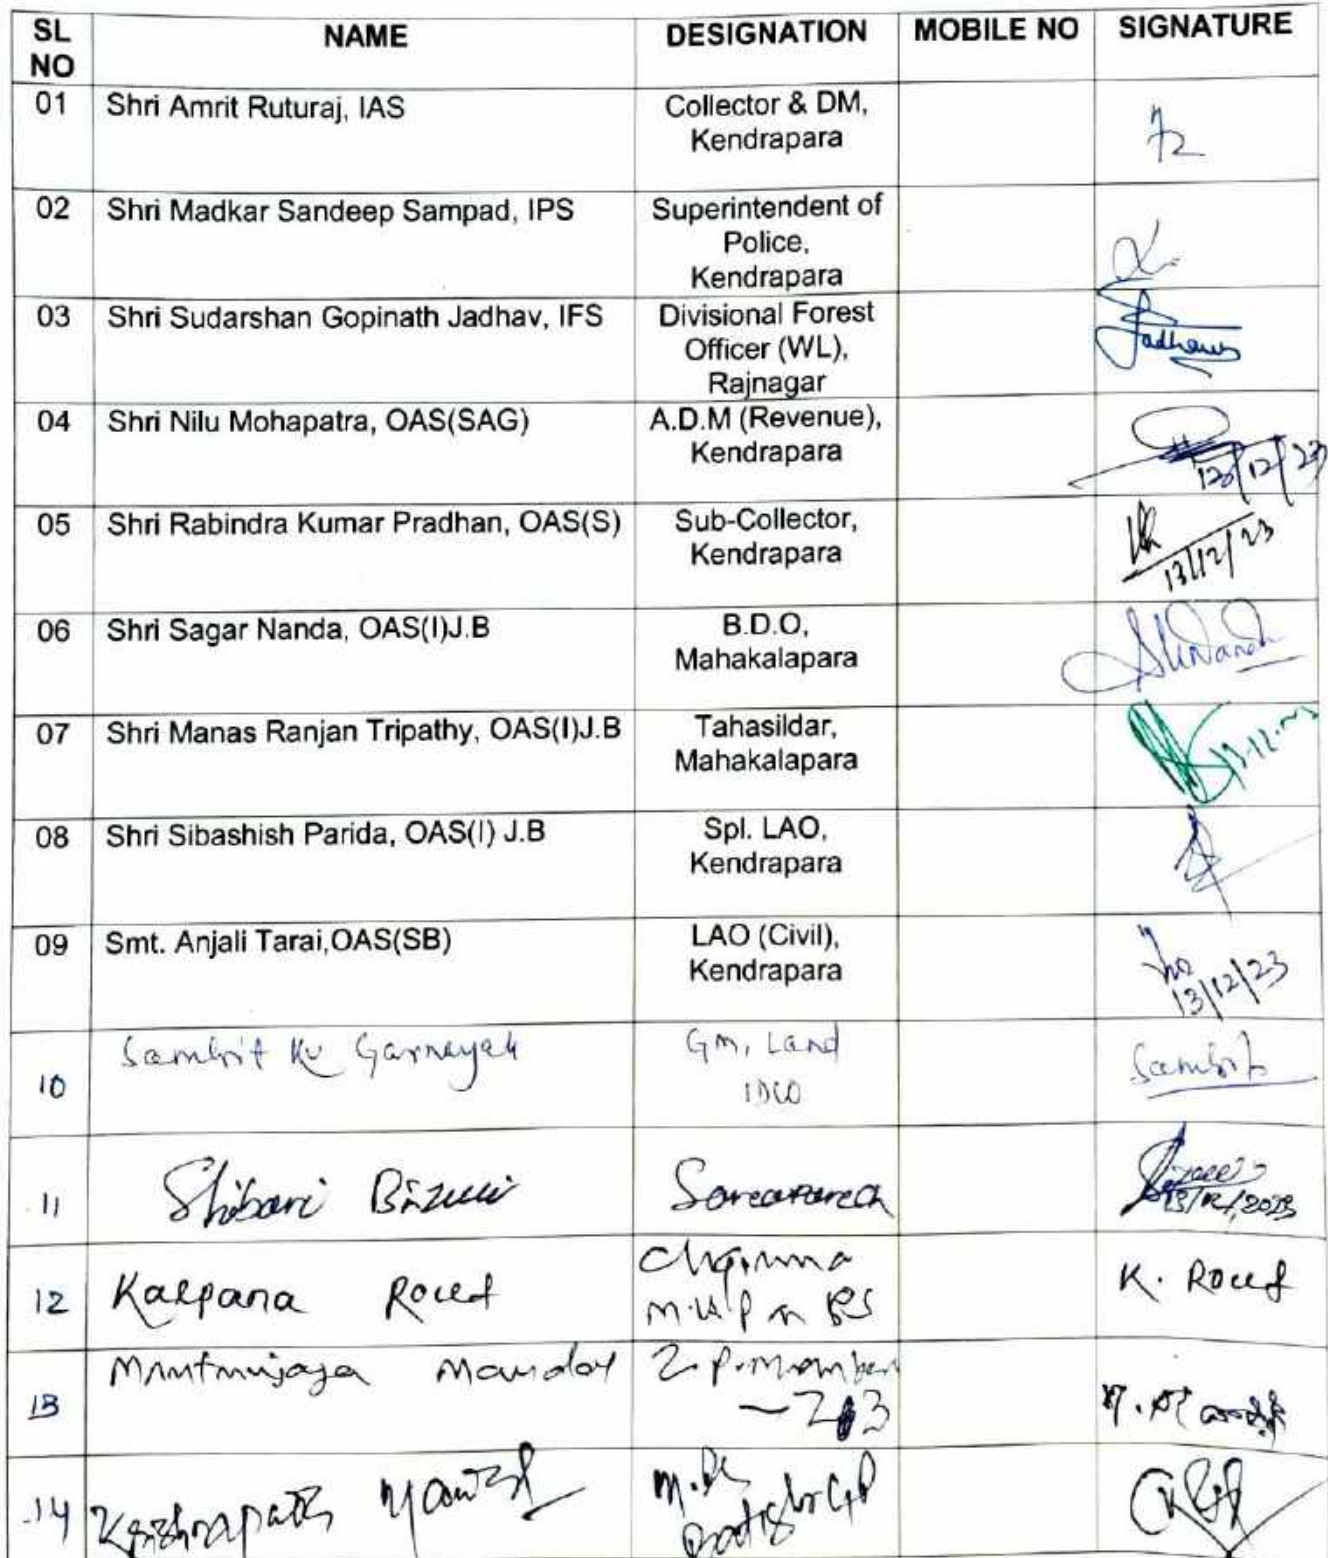 SL NO NAME DESIGNATION MOBILE NO SIGNATURE
01 Shri Amrit Ruturaj, IAS Collector & DM,
Kendrapara
02 Shri Madkar Sandeep Sampad, IPS Superintendent of
Police,
Kendrapara
03 Shri Sudarshan Gopinath Jadhav, IFS Divisional Forest
Officer (WL),
Rajnagar
Jadhav
04 Shri Nilu Mohapatra, OAS(SAG) A.D.M (Revenue),
Kendrapara
05 Shri Rabindra Kumar Pradhan, OAS(S) Sub-Collector,
Kendrapara
13/12/23
06 Shri Sagar Nanda, OAS(I)J.B B.D.O,
Mahakalapara
07 Shri Manas Ranjan Tripathy, OAS(I)J.B Tahasildar,
Mahakalapara
08 Shri Sibashish Parida, OAS(I) J.B Spl. LAO,
Kendrapara
09 Smt. Anjali Tarai,OAS(SB) LAO (Civil),
Kendrapara
13/12/23
10 Sambit Ku Garnayak GM, Land
IDCO
Sambit
11 Shibani
13/12/2023
12 Kalpana Rout
K. Rout
13 Mandal Z.P. member
14